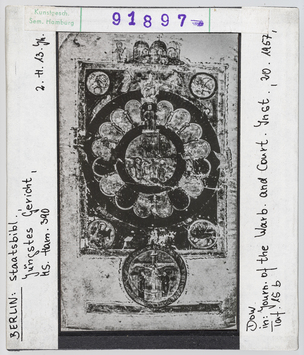 Kunstgesch.
Sem. Hamburg
91897-
BERLIN: Staatsbibl.,
Jüngstes Gericht,
Hs. Ham. 390
2. H. 13. Jh.
Dow
in: Journ. of the Warb. and Court. Inst., 20. 1957,
Taf 16 b